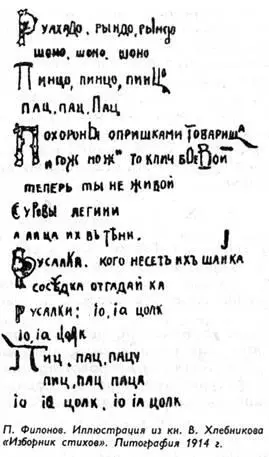 Руахадо, рындо, рындо
шоно, шоно, шоно
Пинцо, пинцо, пинцо
пац, пац, пац
Похороны опришками товарища
"гож нож" то клич боевой
теперь ты не живой
суровы легини
а лица их въ тѣни.
Русалка. кого несетъ ихъ шайка
соседка отгадай ка
русалки: іо, іа цолк
іо, іа цолк
Пиц, пац, пацу
пиц, пац, паца
іо іа цолк, іо іа цолк
П. Филонов. Иллюстрация из кн. В. Хлебникова
«Изборник стихов». Литография 1914 г.